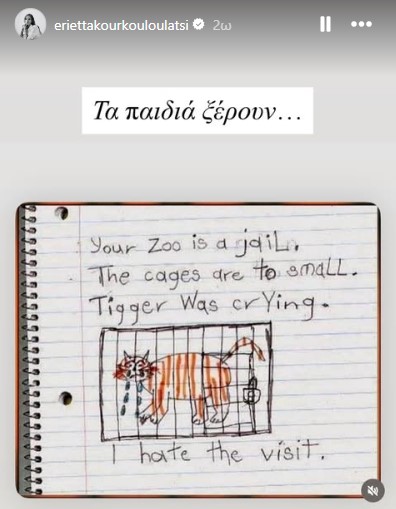 eriettakourkouloulatsi 2ω
Τα παιδιά ξέρουν...
Your Zoo is a jaiL.
The cages are to small.
Tigger Was crYing.
I hate the visit.